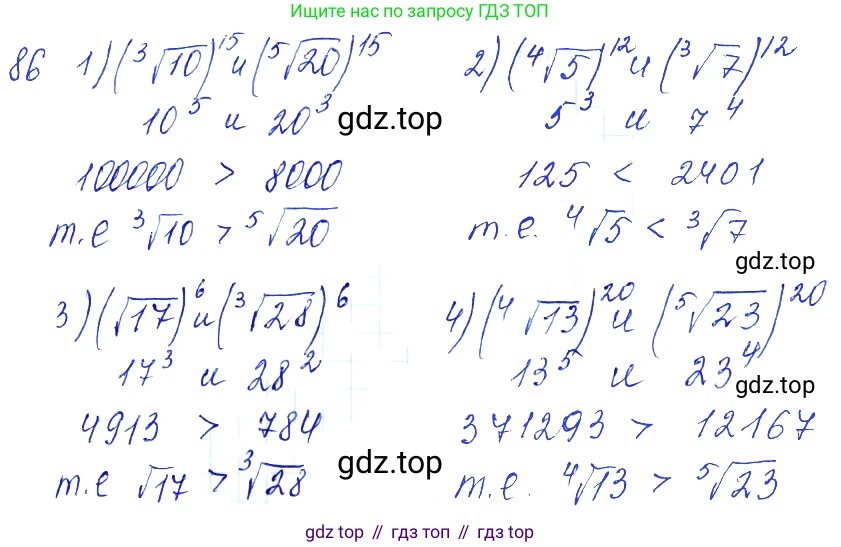 Ищите нас по запросу ГДЗ ТОП
86 1) (³√10)¹⁵ и (⁵√20)¹⁵
10⁵ и 20³
gdz.top
100000 > 8000
т.е ³√10 > ⁵√20
2) (⁴√5)¹² и (³√7)¹²
5³ и 7⁴
125 < 2401
т.е. ⁴√5 < ³√7
gdz.top
3) (√17)⁶ и (³√28)⁶
17³ и 28²
4913 > 784
т.е √17 > ³√28
gdz.top
4) (⁴√13)²⁰ и (⁵√23)²⁰
13⁵ и 23⁴
gdz.top
371293 > 12167
т.е. ⁴√13 > ⁵√23
gdz top // гдз топ // gdz.top